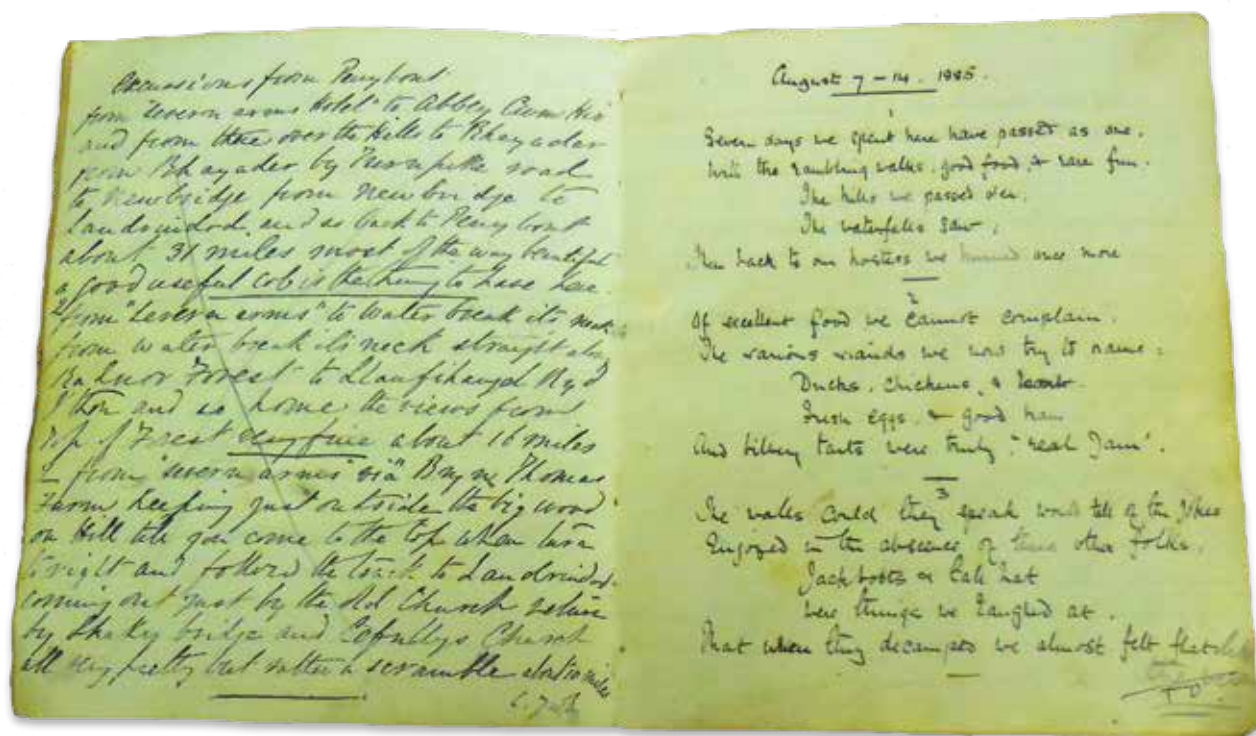 Excursions from Penybont
from "Severn arms Hotel" to Abbey Cwm Hir
and from thence over the hills to Rhayader
from Rhayader by Turnpike road
to Newbridge from Newbridge to
Landrindod, and so back to Penybont
about 31 miles most of the way beautiful
a good useful cob is the thing to have here
from "Severn arms" to Water break its neck
from water break its neck straight
Radnor Forest to Llanfihangel
and so home the views from
top of Forest very fine about 16 miles
from "Severn arms" via Bryn Thomas
Farm keeping just outside the big wood
on Hill till you come to the top when turn
to right and follow the track to Landrindod
coming out just by the old Church return
by Shaky bridge and Cefnllys Church
all very pretty but rather a scramble about 10 miles
August 7 - 14. 1885.
1
Seven days we spent here have passed as one,
With the rambling walks, good food, & rare fun.
The hills we passed o'er,
The waterfalls saw,
Then back to our hostess we once more
2
Of excellent food we cannot complain.
The various viands we now try to name:
Ducks, chickens, & lamb
Fresh eggs, & good ham
And bilbery tarts were truly "real Jam".
3
The walls could they speak would tell of the Jokes
Enjoyed in the absence of those other folks.
Jackboots & tall hat
were things we laughed at.
That when they decamped we almost felt flat